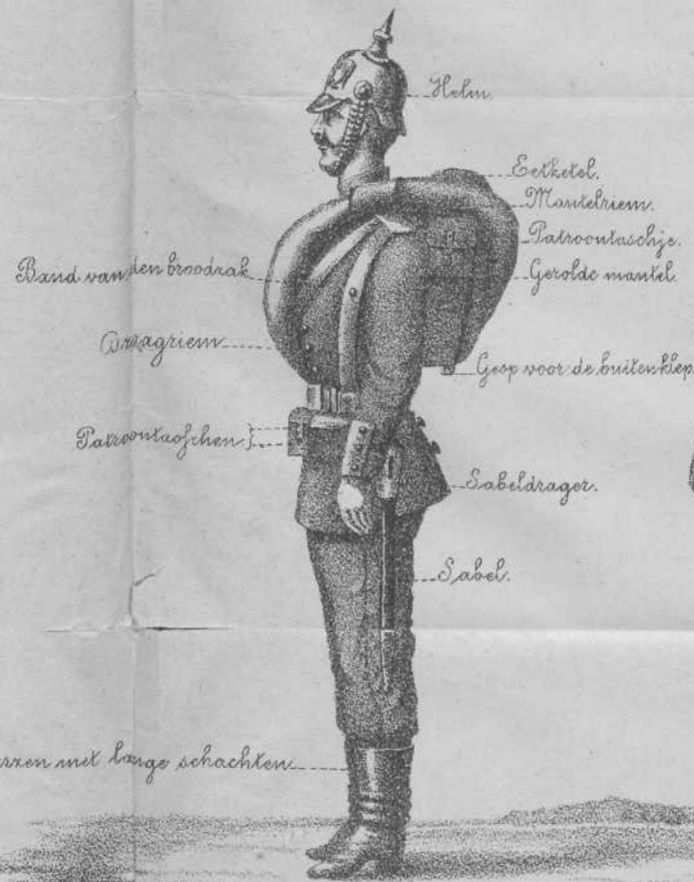 Helm.
Eetketel.
Mantelriem.
Patroontaschje.
Gerolde mantel.
Band van den broodzak
Draagriem
Gesp voor de buitenklep
Patroontasschen
Sabeldrager.
Sabel.
met lange schachten